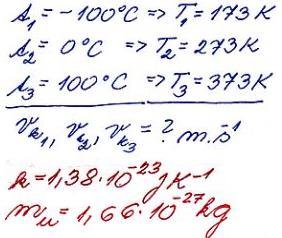 t₁ = -100°C => T₁ = 173 K
t₂ = 0°C => T₂ = 273 K
t₃ = 100°C => T₃ = 373 K
v_k₁, v_k₂, v_k₃ = ? m.s⁻¹
k = 1,38·10⁻²³ JK⁻¹
m_u = 1,66·10⁻²⁷ kg